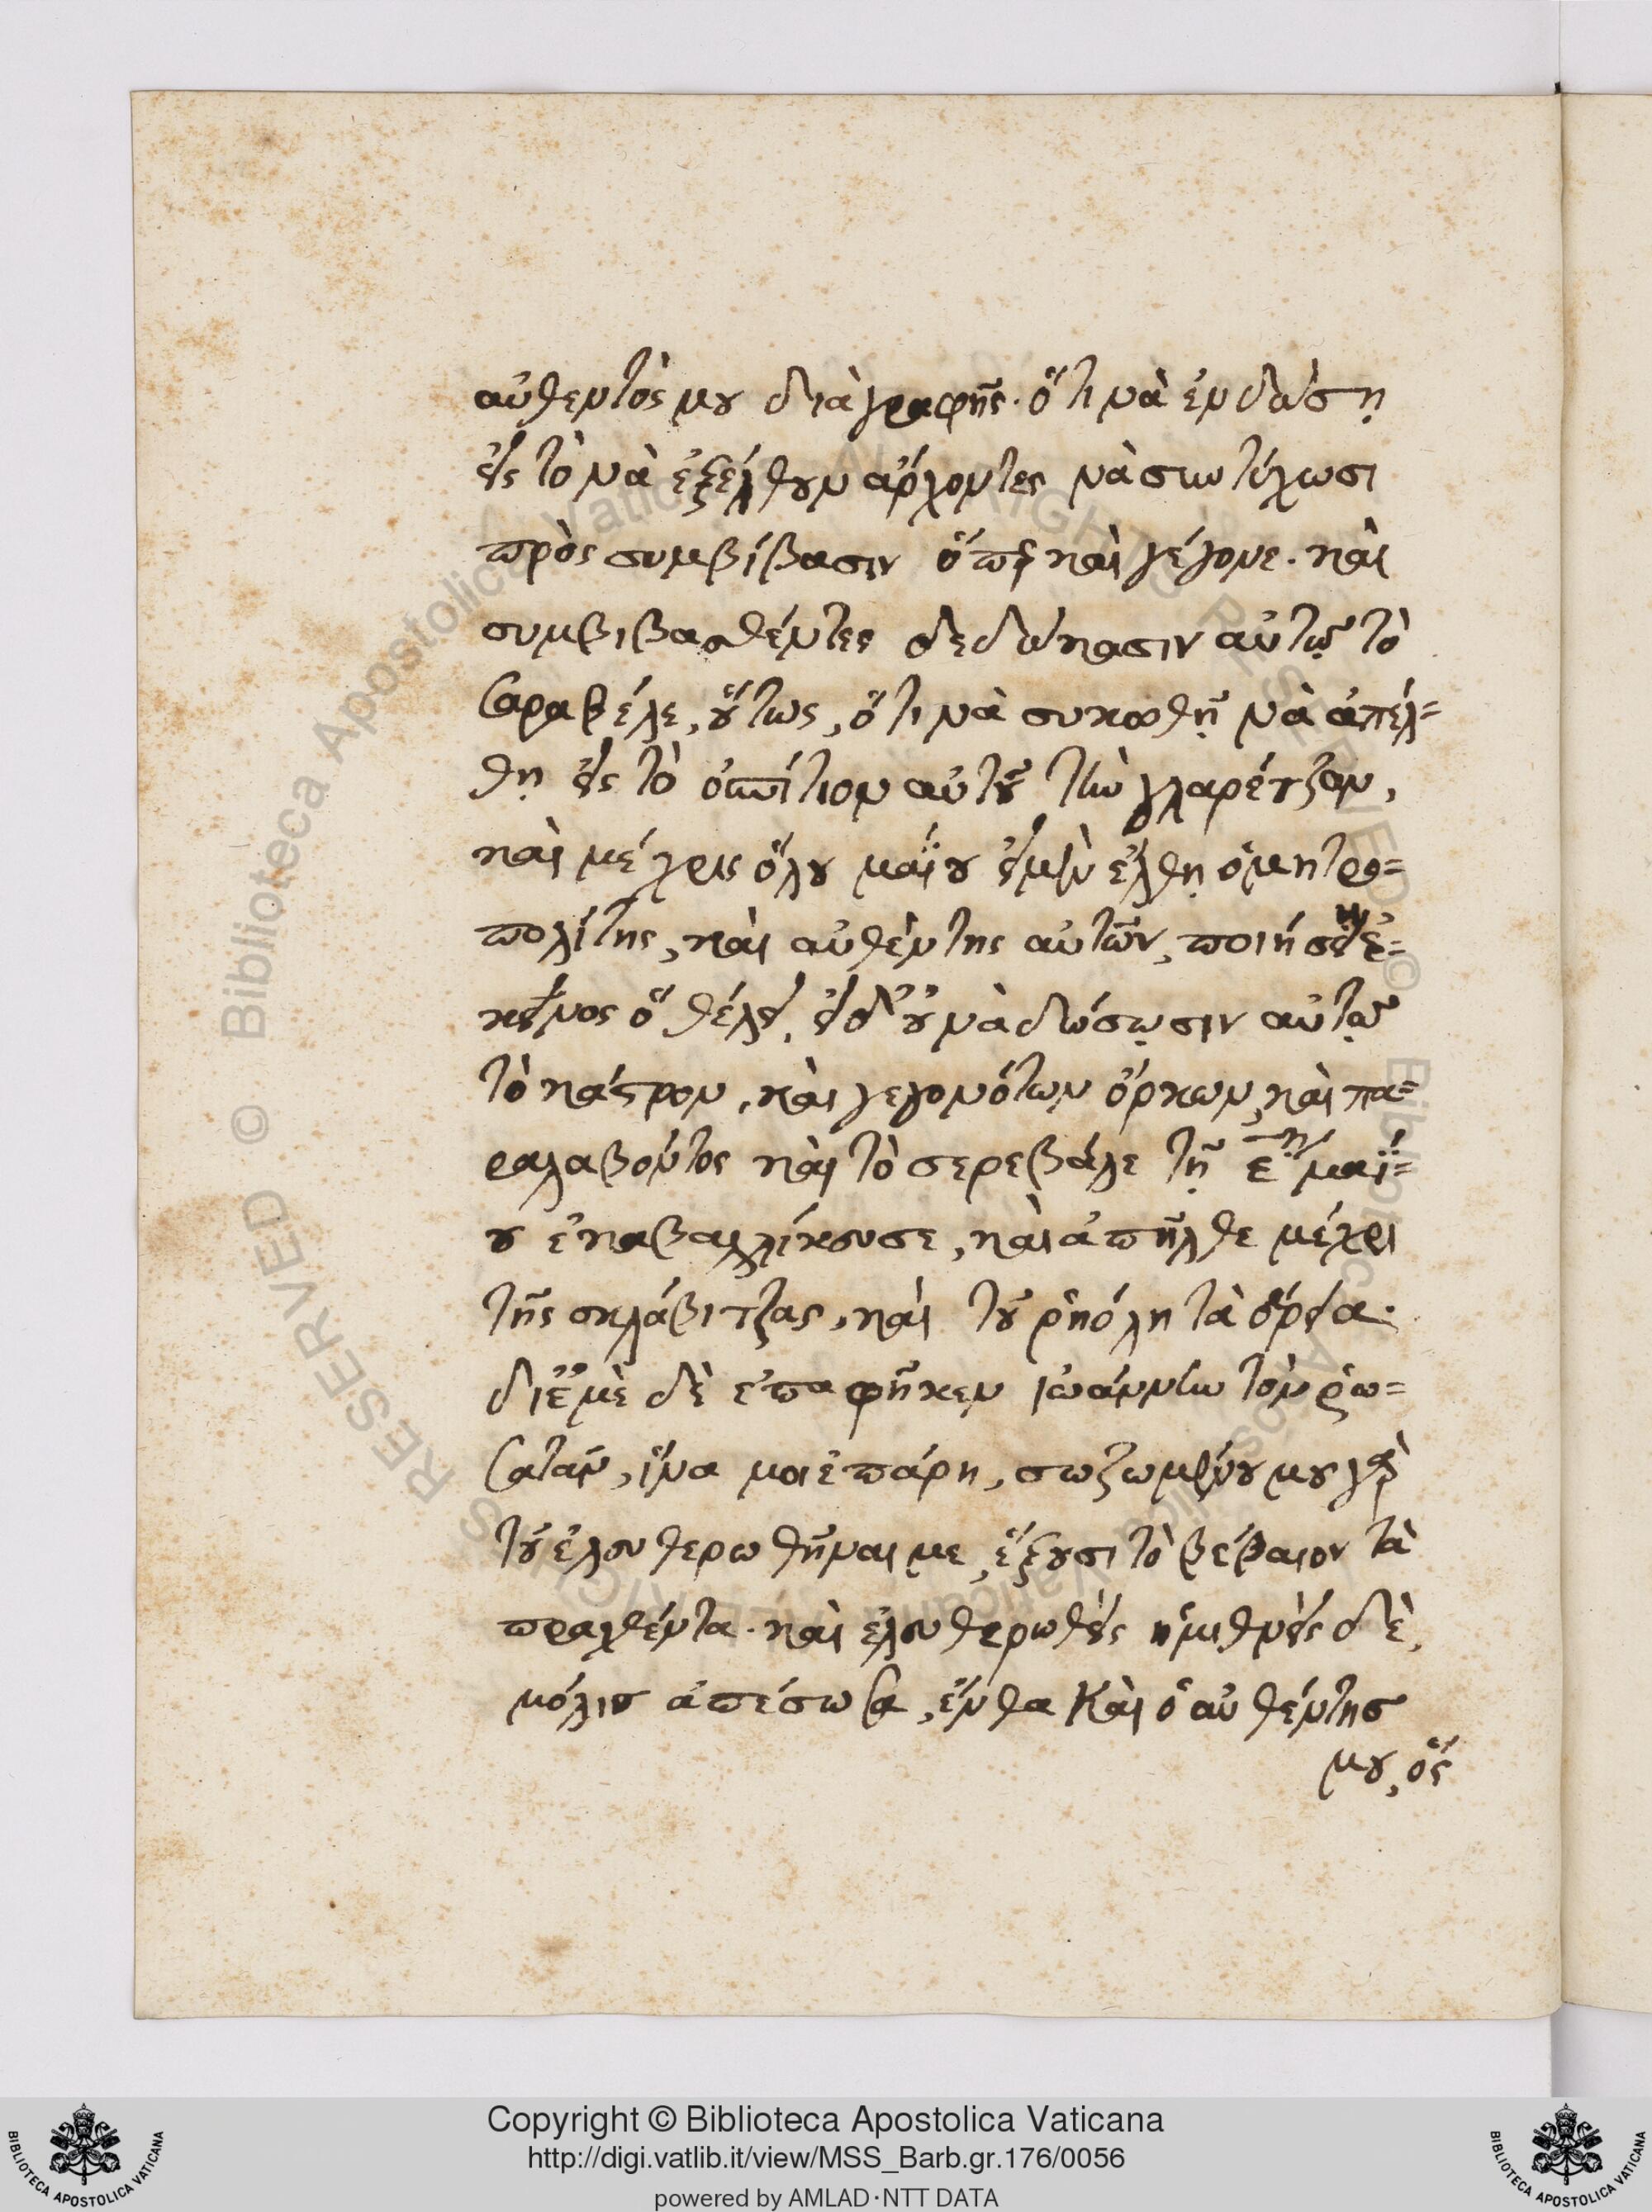 αὐθεντός μου διὰ γραφῆς· ὅτι νὰ ἐνδώσῃ
εἰς τὸ νὰ ἐξέλθουν ἀρχοντες νὰ συντύχωσι
πρὸς συμβίβασιν ὅπερ καὶ γέγονε. καὶ
συμβιβασθέντες δεδώκασιν αὐτῷ τὸ
σαραβέλε, οὕτως, ὅτι νὰ συκωθῇ νὰ ἀπέλ=
θῃ εἰς τὸ ὀσπίτιον αὐτοῦ τὴν γλαρέντζαν,
καὶ μέχρις ὅλου μαΐου εἰμὲν ἔλθῃ ὁ μητρο=
πολίτης, καὶ αὐθέντης αὐτῶν, ποιήσειν ἐ=
κεῖνος ὃ θέλει, εἰδ' οὐ νὰ δώσωσιν αὐτῷ
τὸ κάστρον, καὶ γεγονότων ὅρκων, καὶ πα=
ραλαβόντος καὶ τὸ σερεβάλε τῇ ε ῃ μαΐ=
ου ἐκαβαλλίκευσε, καὶ ἀπῆλθε μέχρι
τῆς σκλάβιτζας, καὶ τοῦ ῥηόλη τὰ ὅρια.
δι' ἐμὲ δὲ ἐπαφῆκεν ἰωάννην τὸν ῥω=
σατᾶν, ἵνα μοι ἐπάρη, σωζωμένου μου γὰρ
τοῦ ἐλευθερωθῆναι με, ἕξουσι τὸ βέβαιον τὰ
πραχθέντα. καὶ ἐλευθερωθεὶς ἡμιθνὲς δὲ,
μόλις ἀπέσωσα, ἔνθα καὶ ὁ αὐθέντης
μου, ὃς
Copyright © Biblioteca Apostolica Vaticana
http://digi.vatlib.it/view/MSS_Barb.gr.176/0056
powered by AMLAD·NTT DATA